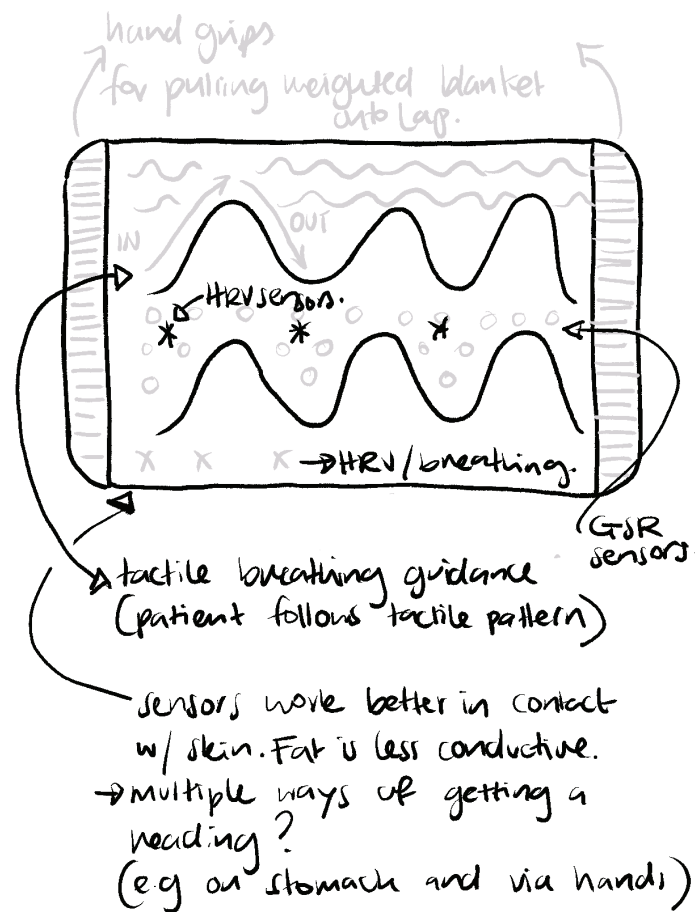 hand grips
for pulling weighted blanket
onto lap.
IN
OUT
HRV sensors.
HRV/breathing.
GSR
sensors.
tactile breathing guidance
(patient follows tactile pattern)
sensors work better in contact
w/ skin. Fat is less conductive.
→ multiple ways of getting a
reading?
(e.g on stomach and via hands)